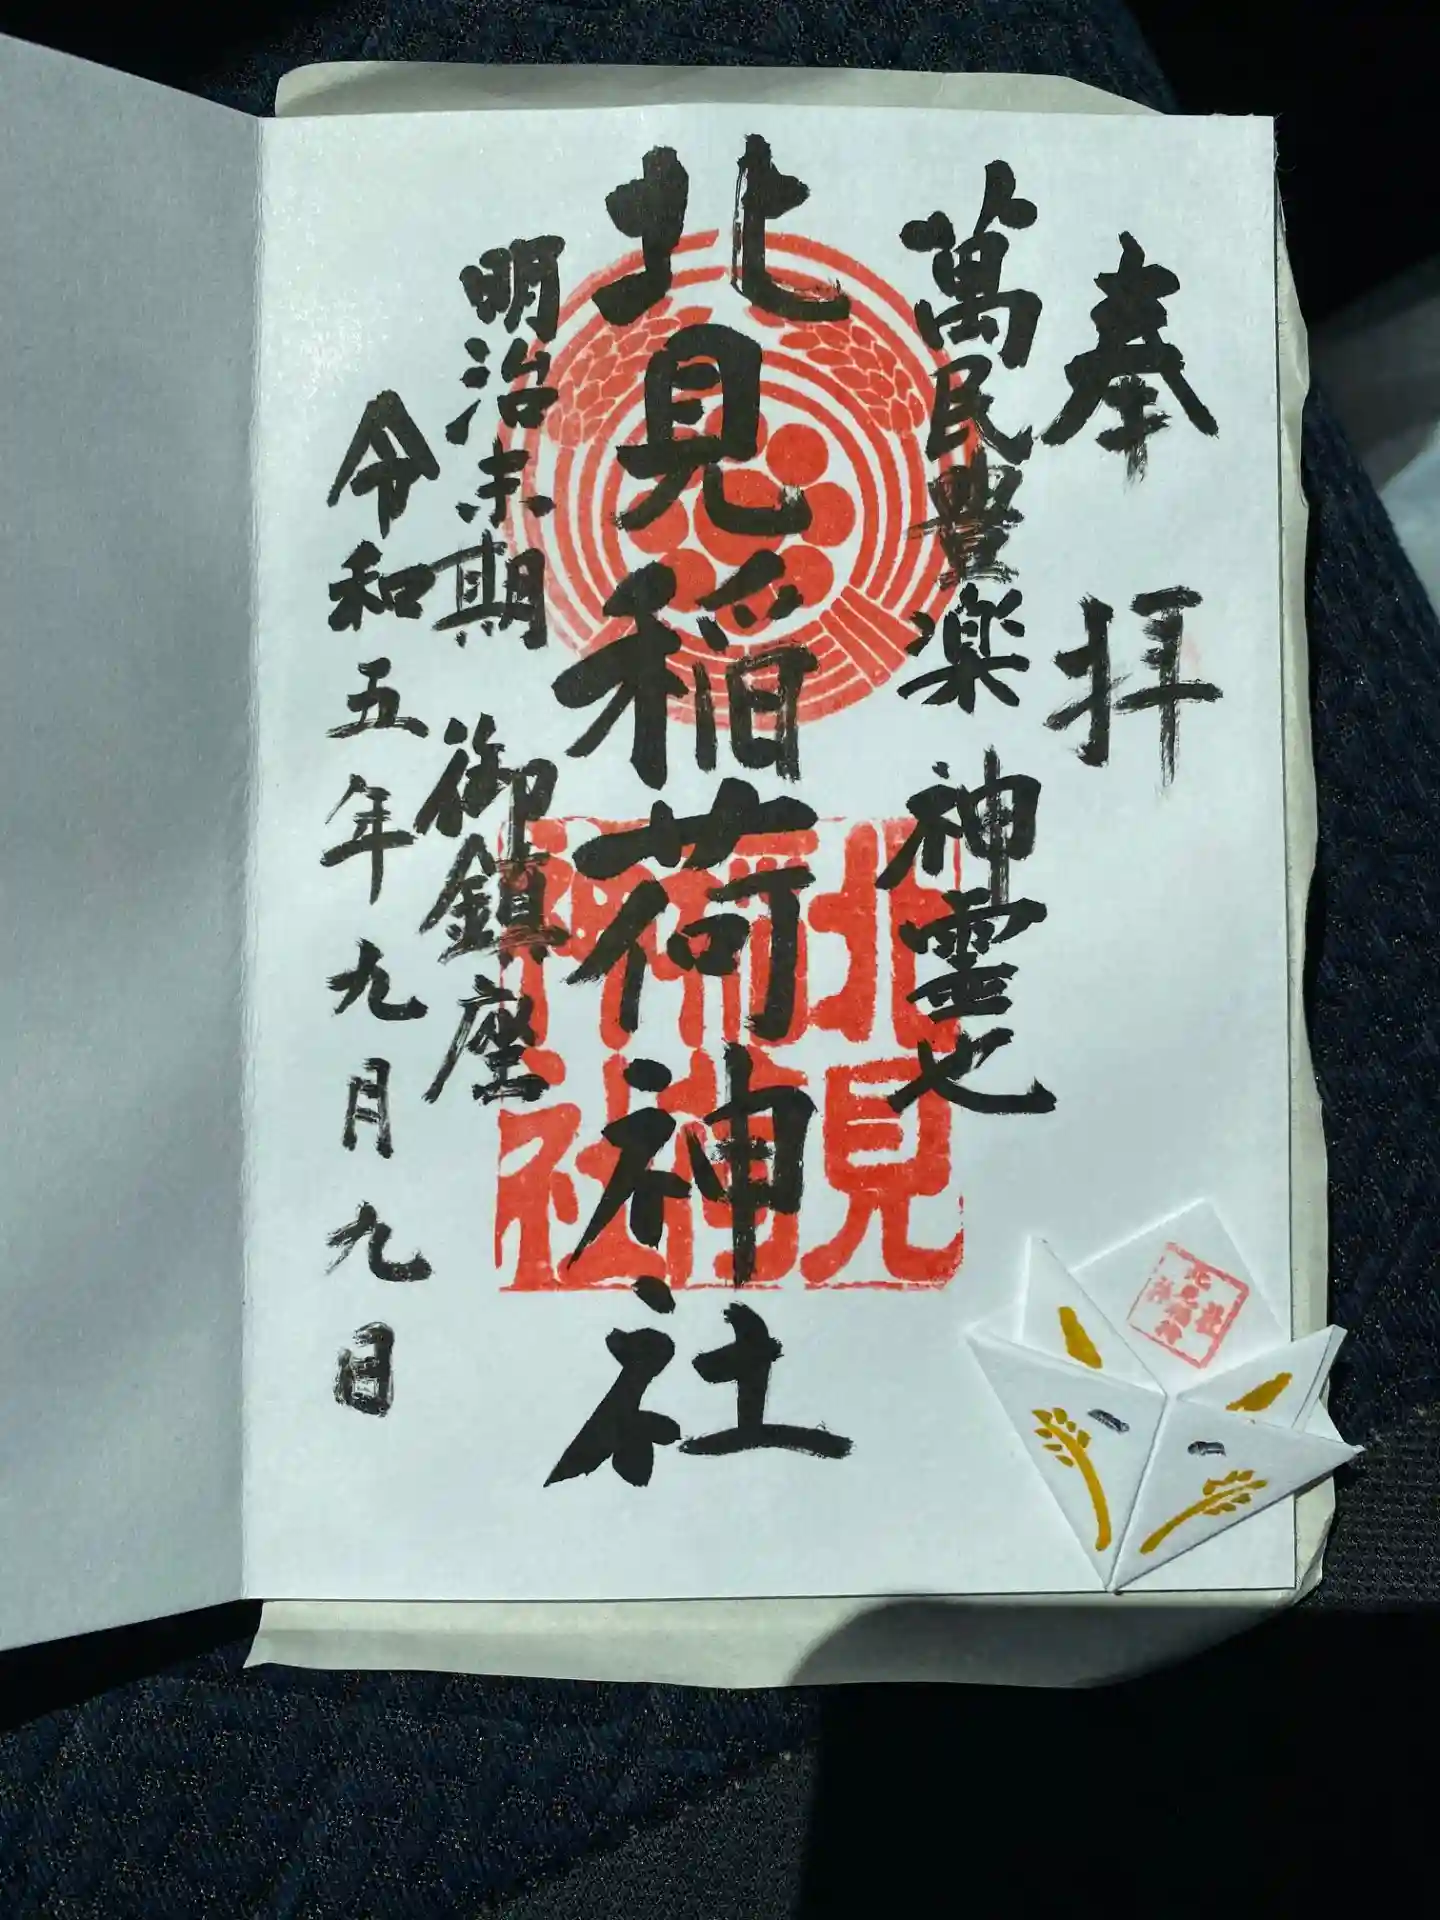 奉拝
萬民豊楽 神霊也
北見稲荷神社
明治末期 御鎮座
令和五年九月九日
北見稲荷神社
北見稲荷神社